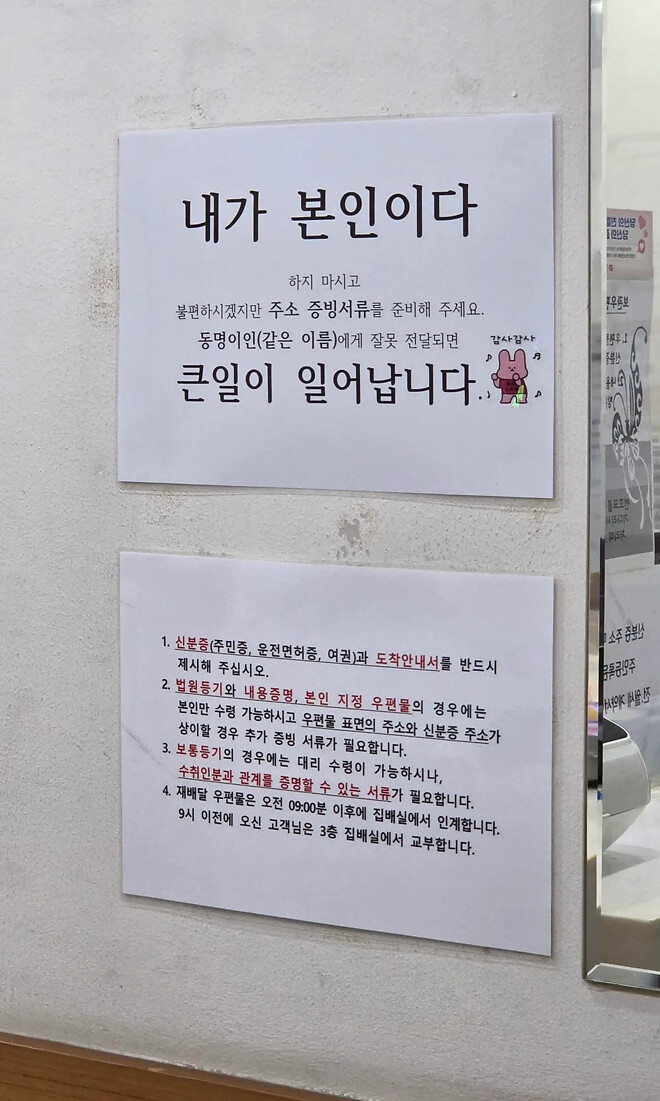 내가 본인이다
하지 마시고
불편하시겠지만 주소 증빙서류를 준비해 주세요.
동명이인(같은 이름)에게 잘못 전달되면
큰일이 일어납니다.
감사감사
1. 신분증(주민증, 운전면허증, 여권)과 도착안내서를 반드시
제시해 주십시오.
2. 법원등기와 내용증명, 본인 지정 우편물의 경우에는
본인만 수령 가능하시고 우편물 표면의 주소와 신분증 주소가
상이할 경우 추가 증빙 서류가 필요합니다.
3. 보통등기의 경우에는 대리 수령이 가능하시나,
수취인분과 관계를 증명할 수 있는 서류가 필요합니다.
4. 재배달 우편물은 오전 09:00분 이후에 집배실에서 인계합니다.
9시 이전에 오신 고객님은 3층 집배실에서 교부합니다.